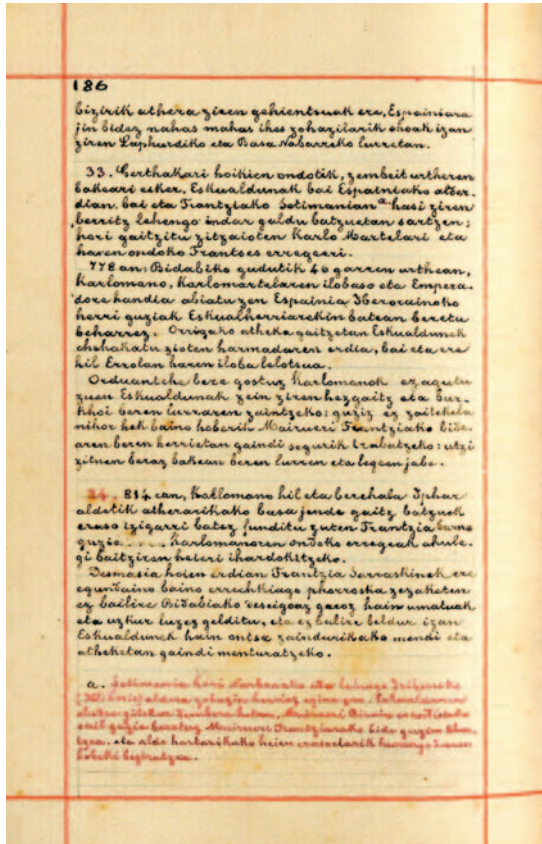 186
bizirik athera ziren gehientsuak ere, Espainiara
jin bidez nahas mahas ihes zohazilarik ehoak izan
ziren Laphurdiko eta Basa Nabarreko lurretan.
33. Gerthakari hoikien ondotik, zembeit urtheren
bakeari esker, Eskualdunak bai Espainiako alder-
dian, bai eta Frantziako Setimanian a hasi ziren
berritz lehengo indar galdu batzuetan sartzen;
hori gaitzitu zitzaioten Karlo Martelari eta
haren ondoko Frantses erregerri.
778 an; Bidabiko gudutik 46 garren urthean,
Karlomano, Karlomartelaren ilobaso eta Empera-
dore handia abiatu zen Espainia Iberorainoko
herri guziak Eskualherriarekin batean beretu
beharrez. Orrigako atheka gaitzetan Eskualdunek
chehakatu zioten harmadaren erdia, bai eta ere
hil Errolan haren iloba lelotsua.
Orduantche bere gostuz Karlomanok ezagutu
zuen Eskualdunak zein ziren hezgaitz eta bur-
khoi beren lurraren zaintzeko; guziz ez zaitekela
nihor hek baino hoberik Mairueri Frantziako bide-
aren beren herrietan gaindi segurik trabatzeko: utzi
zituen beraz bakean beren lurren eta legeen jabe.
34. 814 ean, Karlomano hil eta berehala Iphar
aldetik atherarikako basa jende gaitz batzuek
eraso izigarri batez funditu zuten Frantzia barne
guzia .... Karlomanoren ondoko erregeak ahule-
gi baitziren heieri ihardokitzeko.
Desmasia hoien erdian Frantzia Sarraskinek ere
egundaino baino errechkiago phorroska zezaketen
ez balire Bidabiako deseigoaz gacoz hain umatuak
eta uzkur luzez gelditu, eta ez balire beldur izan
Eskualdunek hain ontsa zaindurikako mendi eta
atheketan gaindi menturatzeko.
a. Setimania hori Narbonarko eta
eta alde hartarikako heien
hobeki begiratzea.